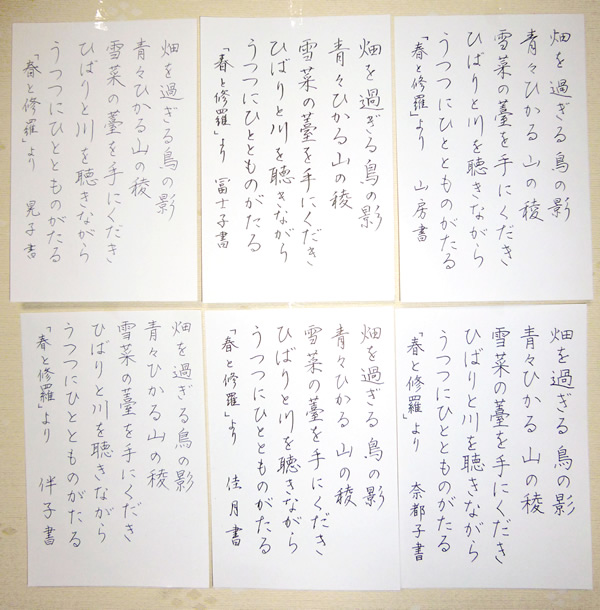 畑を過ぎる鳥の影
青々ひかる山の稜
雪菜の薹を手にくだき
ひばりと川を聴きながら
うつつにひととものがたる
「春と修羅」より 山房書
畑を過ぎる鳥の影
青々ひかる山の稜
雪菜の薹を手にくだき
ひばりと川を聴きながら
うつつにひととものがたる
「春と修羅」より 冨士子書
畑を過ぎる鳥の影
青々ひかる山の稜
雪菜の薹を手にくだき
ひばりと川を聴きながら
うつつにひととものがたる
「春と修羅」より 晃子書
畑を過ぎる鳥の影
青々ひかる山の稜
雪菜の薹を手にくだき
ひばりと川を聴きながら
うつつにひととものがたる
「春と修羅」より 奈都子書
畑を過ぎる鳥の影
青々ひかる山の稜
雪菜の薹を手にくだき
ひばりと川を聴きながら
うつつにひととものがたる
「春と修羅」より 佳月書
畑を過ぎる鳥の影
青々ひかる山の稜
雪菜の薹を手にくだき
ひばりと川を聴きながら
うつつにひととものがたる
「春と修羅」より 伴子書